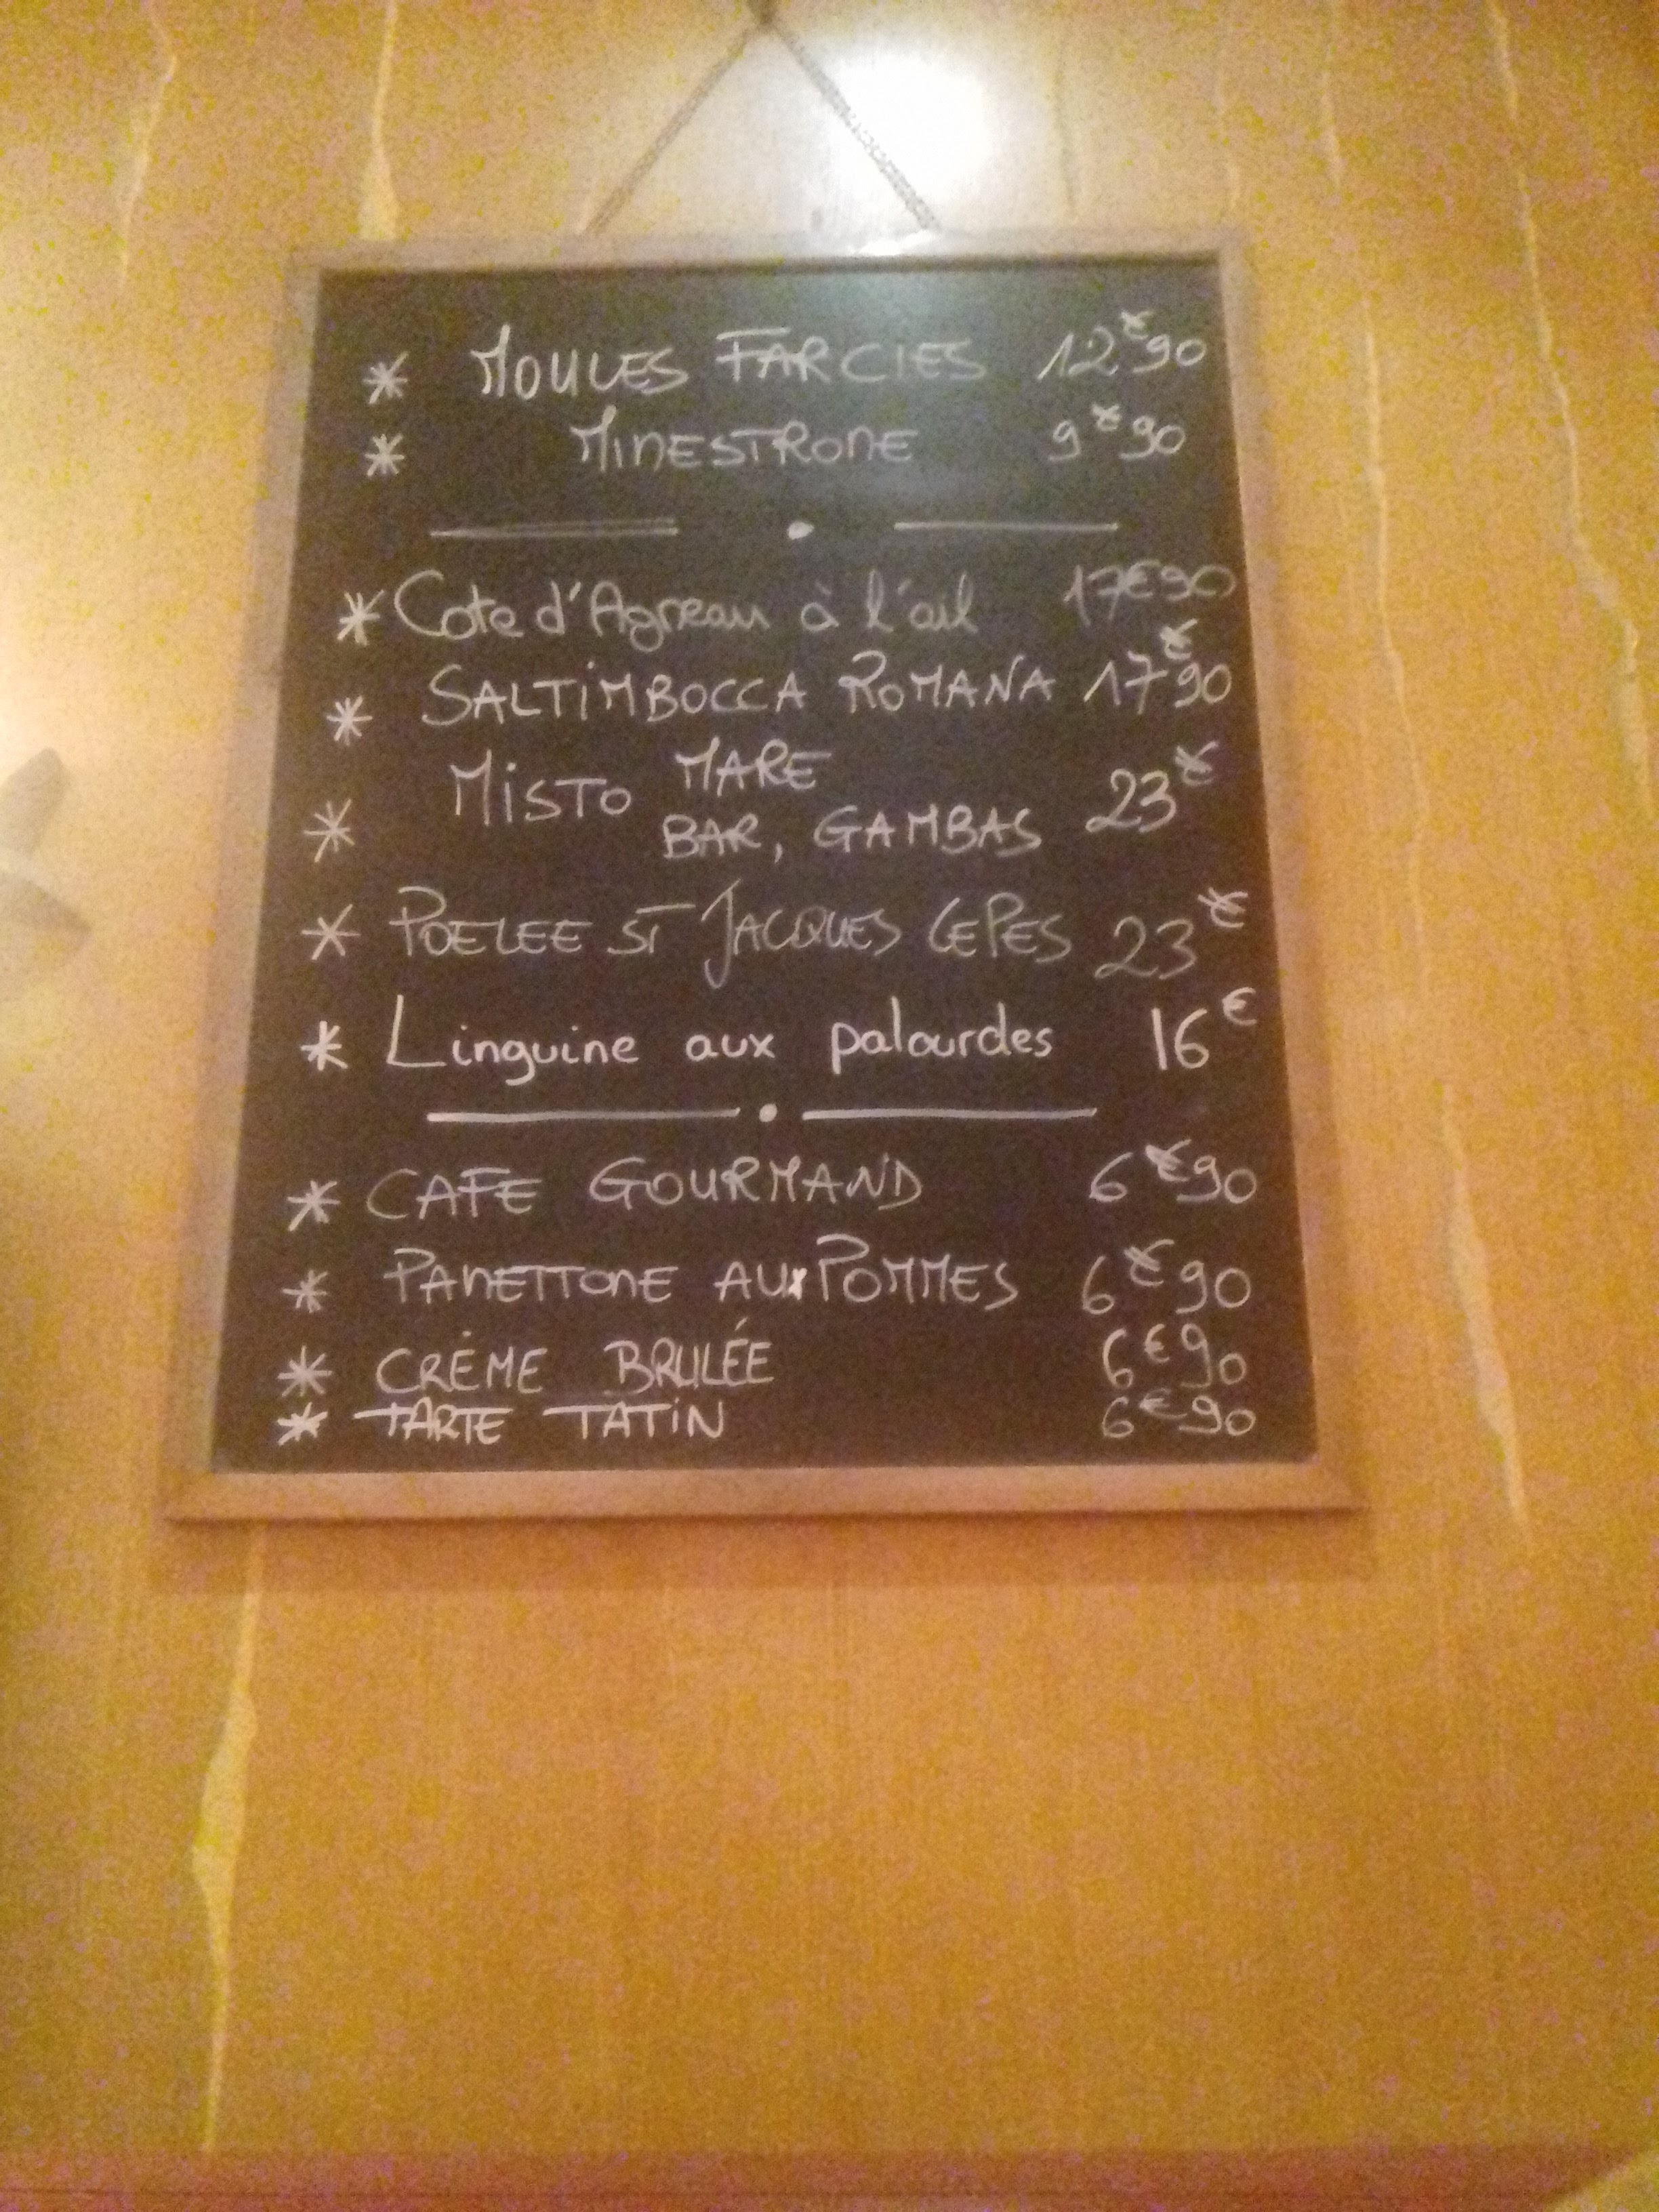 * MOULES FARCIES 12€90
* MINESTRONE 9€90
* Cote d'Agneau à l'ail 17€90
* SALTIMBOCCA ROMANA 17€90
* MISTO MARE 23€
BAR, GAMBAS
* POELEE ST JACQUES CEPES 23€
* Linguine aux palourdes 16€
* CAFE GOURMAND 6€90
* PANETTONE AUX POMMES 6€90
* CRÈME BRULÉE 6€90
* TARTE TATIN 6€90